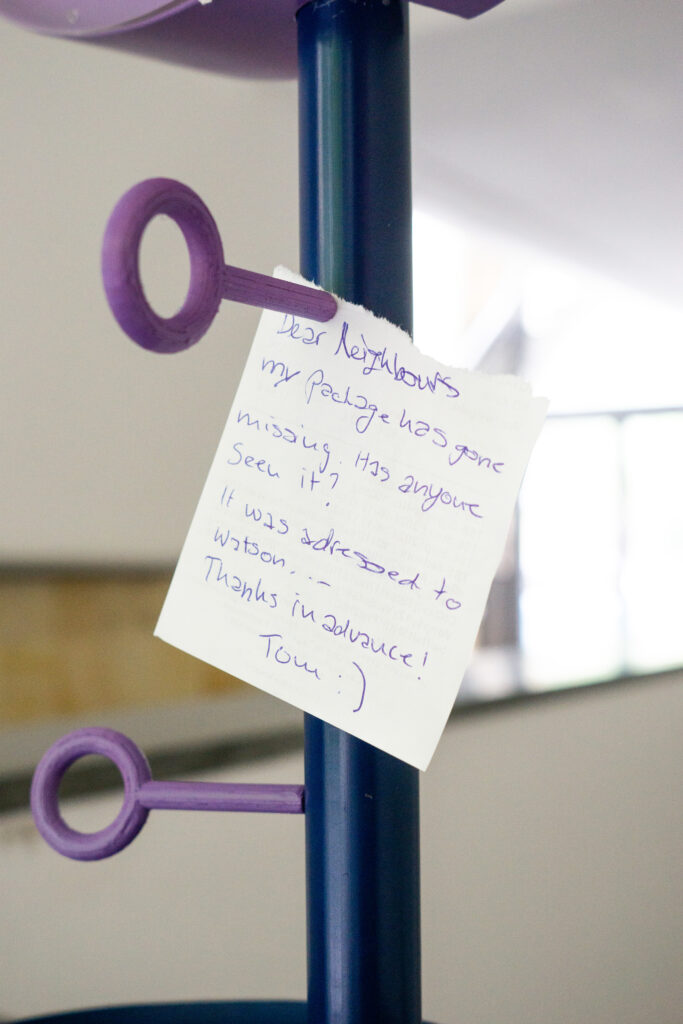 Dear Neighbours
my package has gone
missing. Has anyone
seen it?
It was adressed to
Watson...-
Thanks in advance!
Tom :)